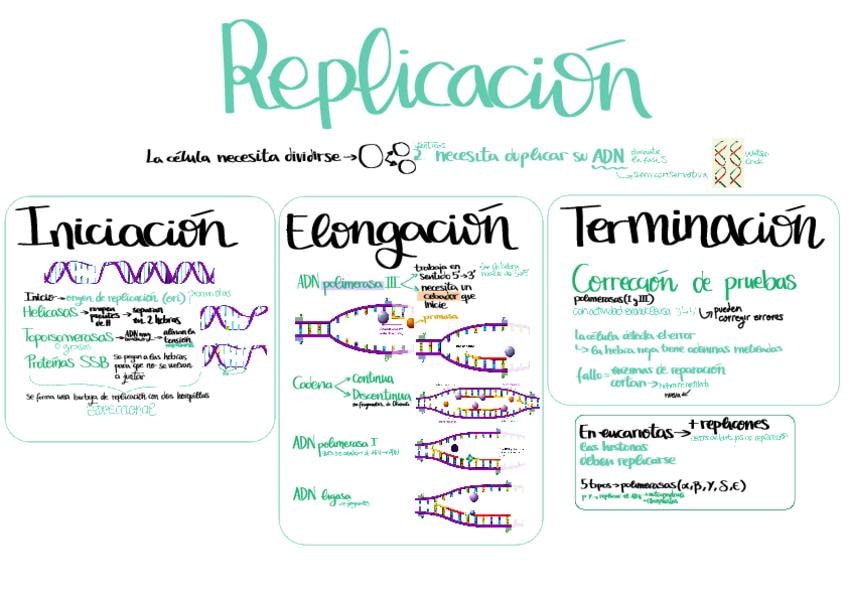 Replicación
La célula necesita dividirse → 2 necesita duplicar su ADN
semiconservativa
Watson
Crick
Iniciación
Inicio → origen de replicación (ori)
Helicasas → rompen puentes de H → separan en 2 hebras
Toposomerasas → ADN → alivian la tensión
o girasas
Proteínas SSB se pegan a las hebras
para que no se vuelvan
a juntar
Se forma una burbuja de replicación con dos horquillas
Bidireccional
Elongación
ADN polimerasa III
trabaja en
sentido 5'→3'
necesita un
cebador que
inicie
primasa
Cadena
Continua
Discontinua
ADN polimerasa I
ADN ligasa
Terminación
Corrección de pruebas
polimerasas (I y III)
con actividad exonucleasa 3'→5'
pueden
corregir errores
La célula detecta el error
↳ la hebra vieja tiene adeninas metiladas
fallo → enzimas de reparación
cortan →
En eucariotas → + replicones
Las histonas
deben replicarse
5 tipos → polimerasas (α, β, γ, δ, ε)